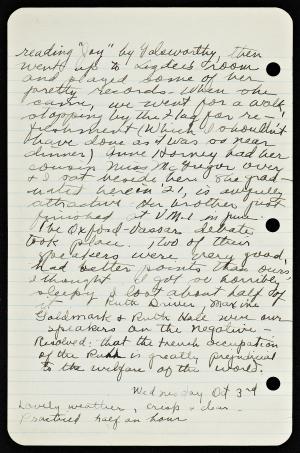 reading "Joy" by Galsworthy, then
went up to Lizdee's room
and played some of her
pretty records. When she
came, we went for a walk
stopping by the Flag for re-
freshment (Which I shouldn't
have done as I was so near
dinner) Anne Horney had her
cousin Miss McGregor over
& I sat beside her. She grad-
uated here in '21, is awfully
attractive. Her brother just
finished at V.M.I. in June.
The Oxford-Vassar debate
took place. Two of their
speakers were very good,
had better points than ours,
I thought. I got so horribly
sleepy I lost about half of
it. Ruth Maxine
Goldmark & Ruth Hale were our
speakers on the negative -
Resolved: that the French occupation
of the Ruhr is greatly prejudicial
to the welfare of the world.
Wednesday Oct 3rd
Lovely weather, crisp & clear.
Practised half an hour